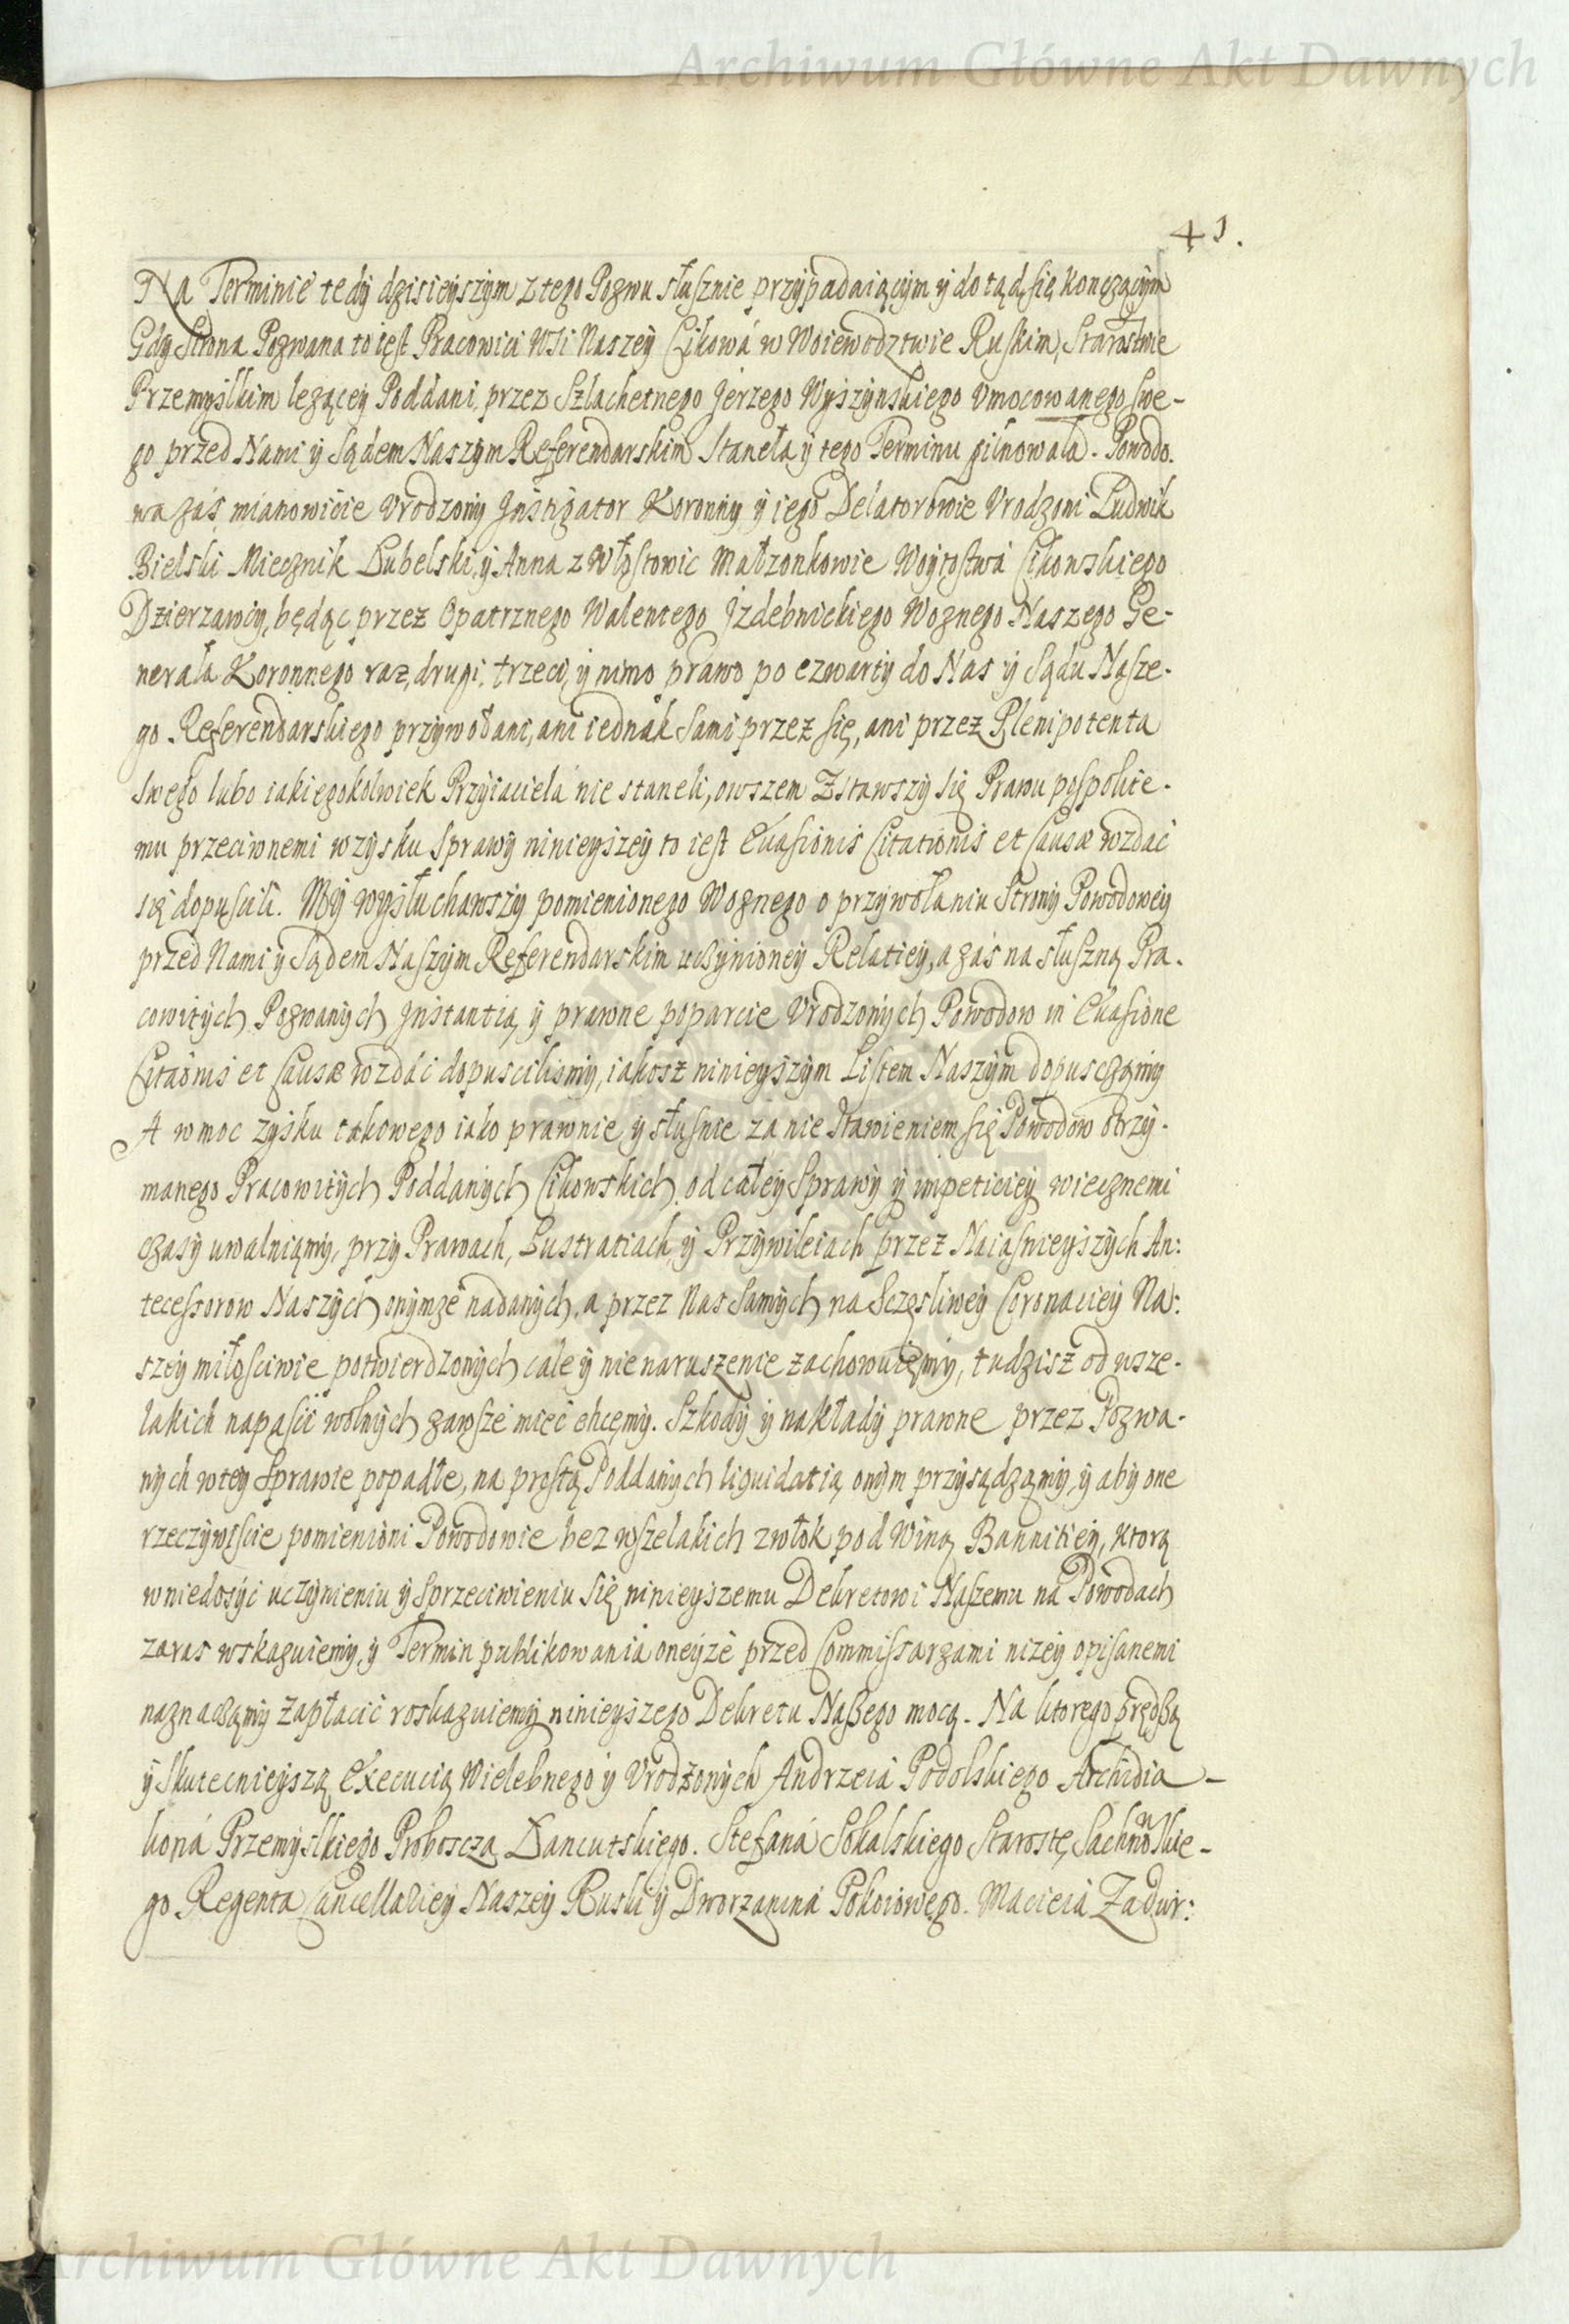 Archiwum Główne Akt Dawnych
41.
Na Terminie tedÿ dzisieÿszÿm z tego Pozwu słusznie przÿpadaiącÿm ÿ do tąd się konczącÿm
Gdÿ Strona Pozwana to iest Pracowici Wsi Naszeÿ Cikowá w Woiewodztwie Ruskim, Starostwie
Przemÿslkim lezącey Poddani, przez Szlachetnego Jerzego Wÿszÿnskiego Vmocowanego swe-
go przed Nami ÿ Sądem Naszÿm Referendarskim Staneła ÿ tego Terminu pilnowała. Powodo.
wa zaś mianowicie Vrodzonÿ Jnstigator Koronnÿ ÿ iego Delatorowie Vrodzoni Ludwik
Bielski Miecznik Lubelski, ÿ Anna z Włostowic Małzonkowie Woÿtostwá Cikowskiego
Dzierzawcÿ, będąc przez Opatrznego Walentego Jzdebnickiego Woznego Naszego Ge-
nerała Koronnego raz, drugi, trzeci, ÿ nimo prawo po czwartÿ do Nas ÿ Sądu Nasze-
go Referendarskiego przÿwołani, ani iednák sami przez się, ani przez Plenipotenta
swego lubo iakiegokolwiek Przÿiaciela nie staneli, owszem Zstawszÿ się Prawu pospolite-
mu przeciwnemi w zÿsku Sprawÿ ninieÿszeÿ to iest Euasionis Citationis et Causæ wzdac
się dopuscili. MŸ wÿsłuchawszÿ pomienionego Woznego o przÿwołaniu Stronÿ Powodoweÿ
przed Nami ÿ Sądem Naszÿm Referendarskim uczÿnioneÿ Relatieÿ, a zaś na słuszną Pra-
cowitÿch Pozwanÿch Jnstantią, ÿ prawne poparcie Vrodzonÿch Powodow in Euasione
Citaonis et Causæ wzdać dopuscilismÿ, iakosz ninieÿszÿm Listem Naszÿm dopusczamÿ
A w moc zÿsku takowego iako prawnie ÿ słusnie zá nie stawieniem się Powodow otrzÿ-
manego Pracowitÿch Poddanÿch Cikowskich od całeÿ Sprawÿ ÿ impeticieÿ wiecznemi
czasÿ uwalniąmÿ, przÿ Prawach, Lustratiach, ÿ Przÿwileiach przez Naiasnieÿszÿch An:
tecessorow Naszÿch onÿmze nadanÿch, a przez Nas Samÿch na Sczęsliweÿ Coronacieÿ Na:
szeÿ miłosciwie potwierdzonÿch cale ÿ nienaruszenie zachowuięmÿ, tudzisz od wsze-
lakich napasci wolnÿch zawsze mieć chcęmÿ. Szkodÿ ÿ nakładÿ prawne przez Pozwa-
nÿch w teÿ Sprawie popadłe, na prostą Poddanÿch liquidatią onÿm przÿsądzamÿ, ÿ abÿ one
rzeczÿwiscie pomienioni Powodowie bez wszelakich zwłok pod Winą Bannitieÿ, ktorą
w niedosÿć uczÿnieniu ÿ sprzeciwieniu się ninieÿszemu Dekretowi Naszemu na Powodach
zaras wskazuiemÿ, ÿ Termin publikowania oneÿze przed Commissarzami nizeÿ opisanemi
naznaczamÿ zapłacić roskazuiemÿ ninieÿszego Dekretu Naszego mocą. Na ktorego prędszą
ÿ skutecnieÿszą Execucią Wielebnego ÿ Vrodzonÿch Andrzeia Podolskiego Archidia-
koná Przemÿslkiego Proboscza Lancutskiego. Stefaná Sokalskiego Starostę Sachnowskie-
go Regenta Cancellarieÿ Naszeÿ Ruski ÿ Dworzanina Pokoiowego. Macieia Zadwr:
Archiwum Główne Akt Dawnych